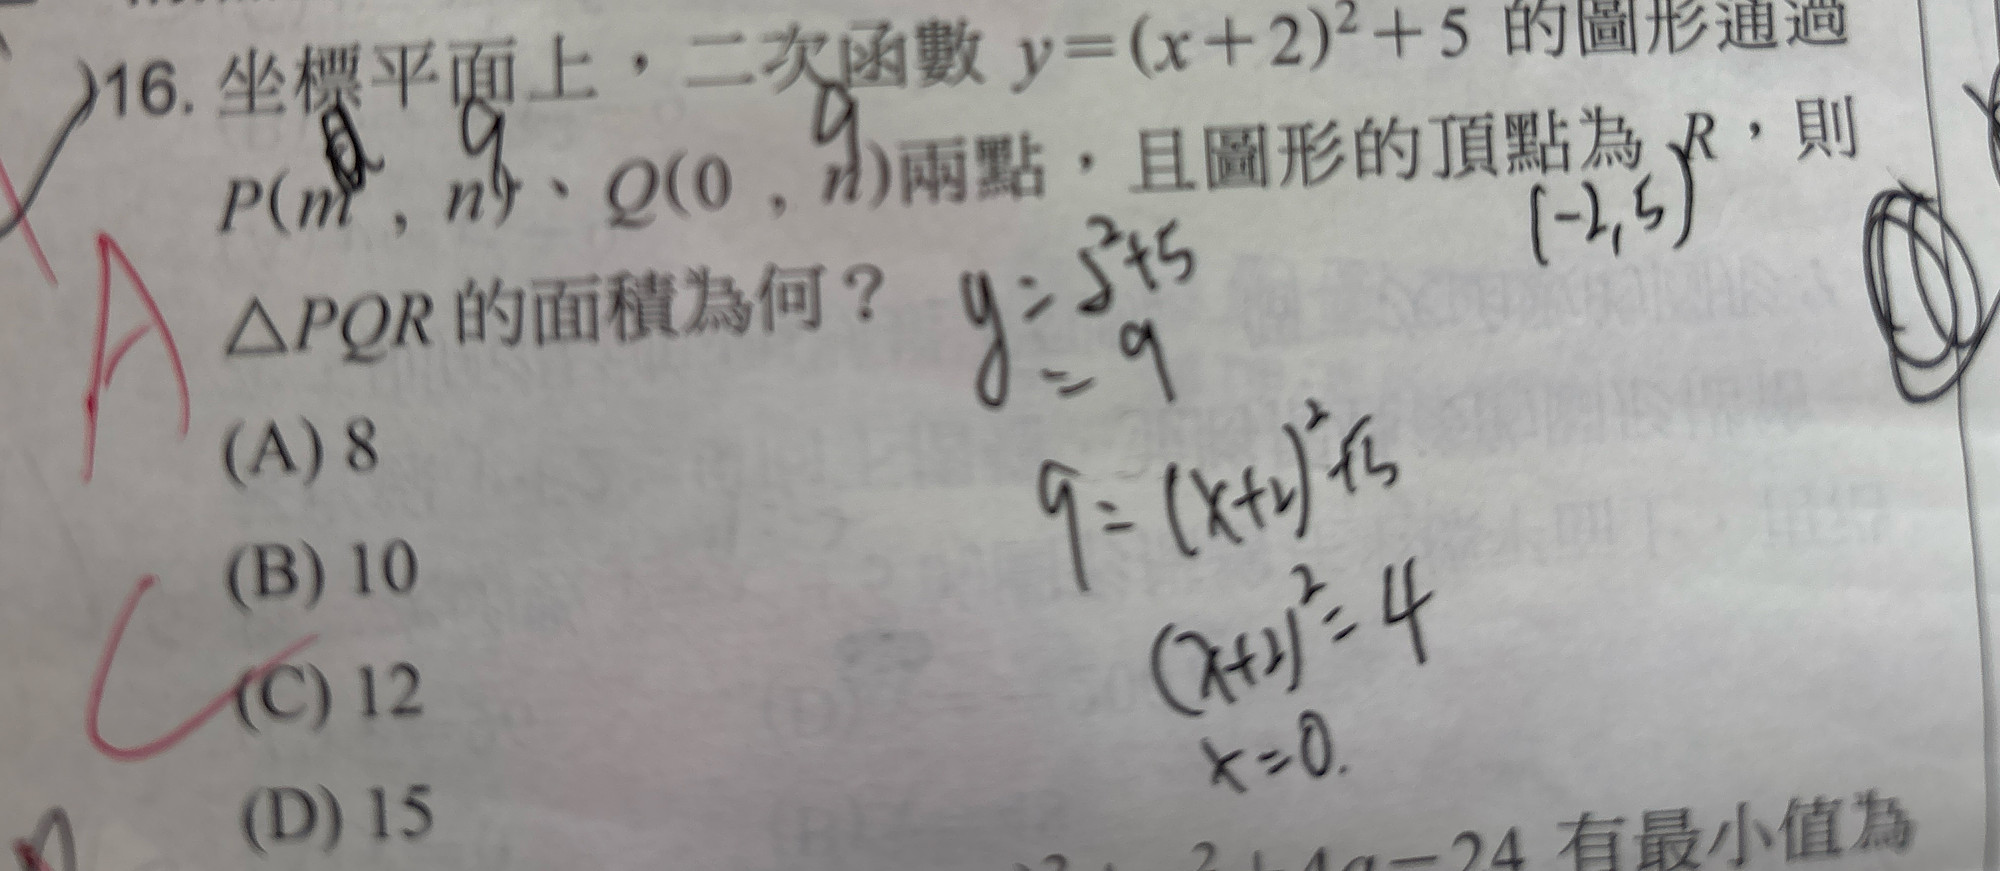 )16. 坐標平面上，二次函數 y=(x+2)²+5 的圖形通過
9 9
P(m, n)、Q(0, n)兩點，且圖形的頂點為 R，則
(-2,5)
△PQR 的面積為何？
y=2²+5
=9
A
(A) 8
9=(x+2)²+5
(B) 10
(x+2)²=4
C
(C) 12
x=0.
(D) 15
+4a-24 有最小值為